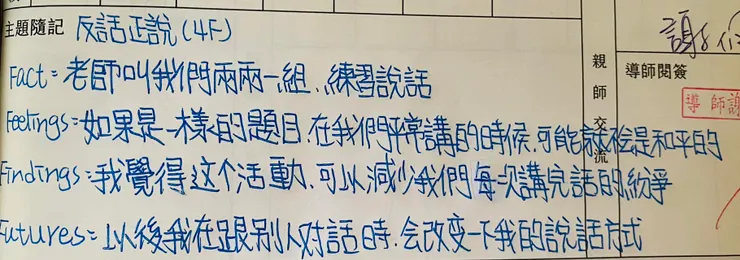 主題隨記 反話正說(4F)
親師交流
導師閱簽
導師謝
Fact=老師叫我們兩兩一組、練習說話
Feelings=如果是一樣的題目,在我們平常講的時候,可能就不會是和平的
Findings=我覺得这个活動,可以減少我們每次講完話的紛爭
Futures=以後我在跟別人对話時,会改变一下我的說話方式